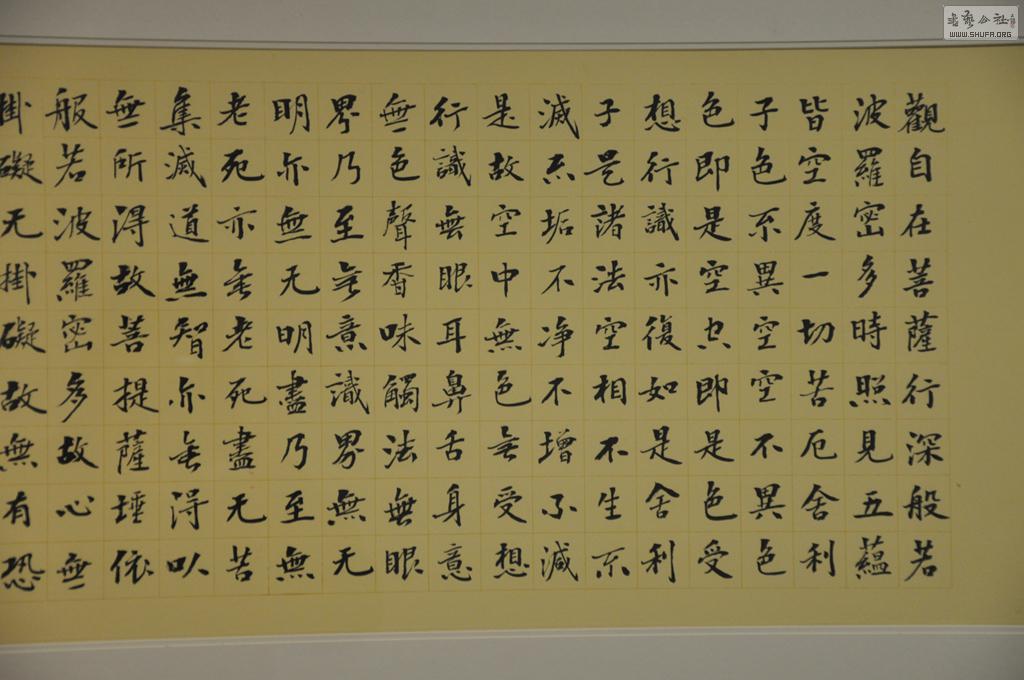 觀自在菩薩行深般若
波羅密多時照見五蘊
皆空度一切苦厄舍利
子色不異空空不異色
色即是空空即是色受
想行識亦復如是舍利
子是諸法空相不生不
滅不垢不净不增不減
是故空中無色無受想
行識無眼耳鼻舌身意
無色聲香味觸法無眼
界乃至無意識界無无
明亦無无明盡乃至無
老死亦無老死盡无苦
集滅道無智亦無得以
無所得故菩提薩埵依
般若波羅密多故心無
掛礙无掛礙故無有恐
書藝公社
WWW.SHUFA.ORG